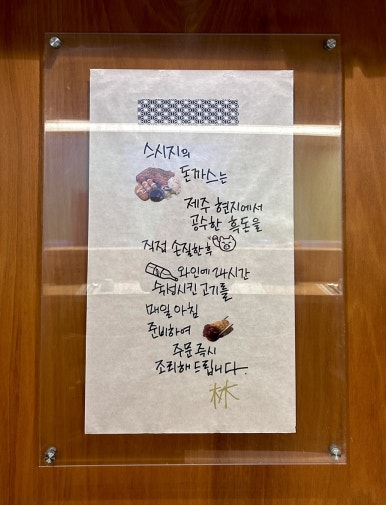 스시지의
돈까스는
제주 현지에서
공수한 흑돈을
직접 손질한 후
와인에 24시간
숙성시킨 고기를
매일 아침
준비하여
주문 즉시
조리해 드립니다.
林